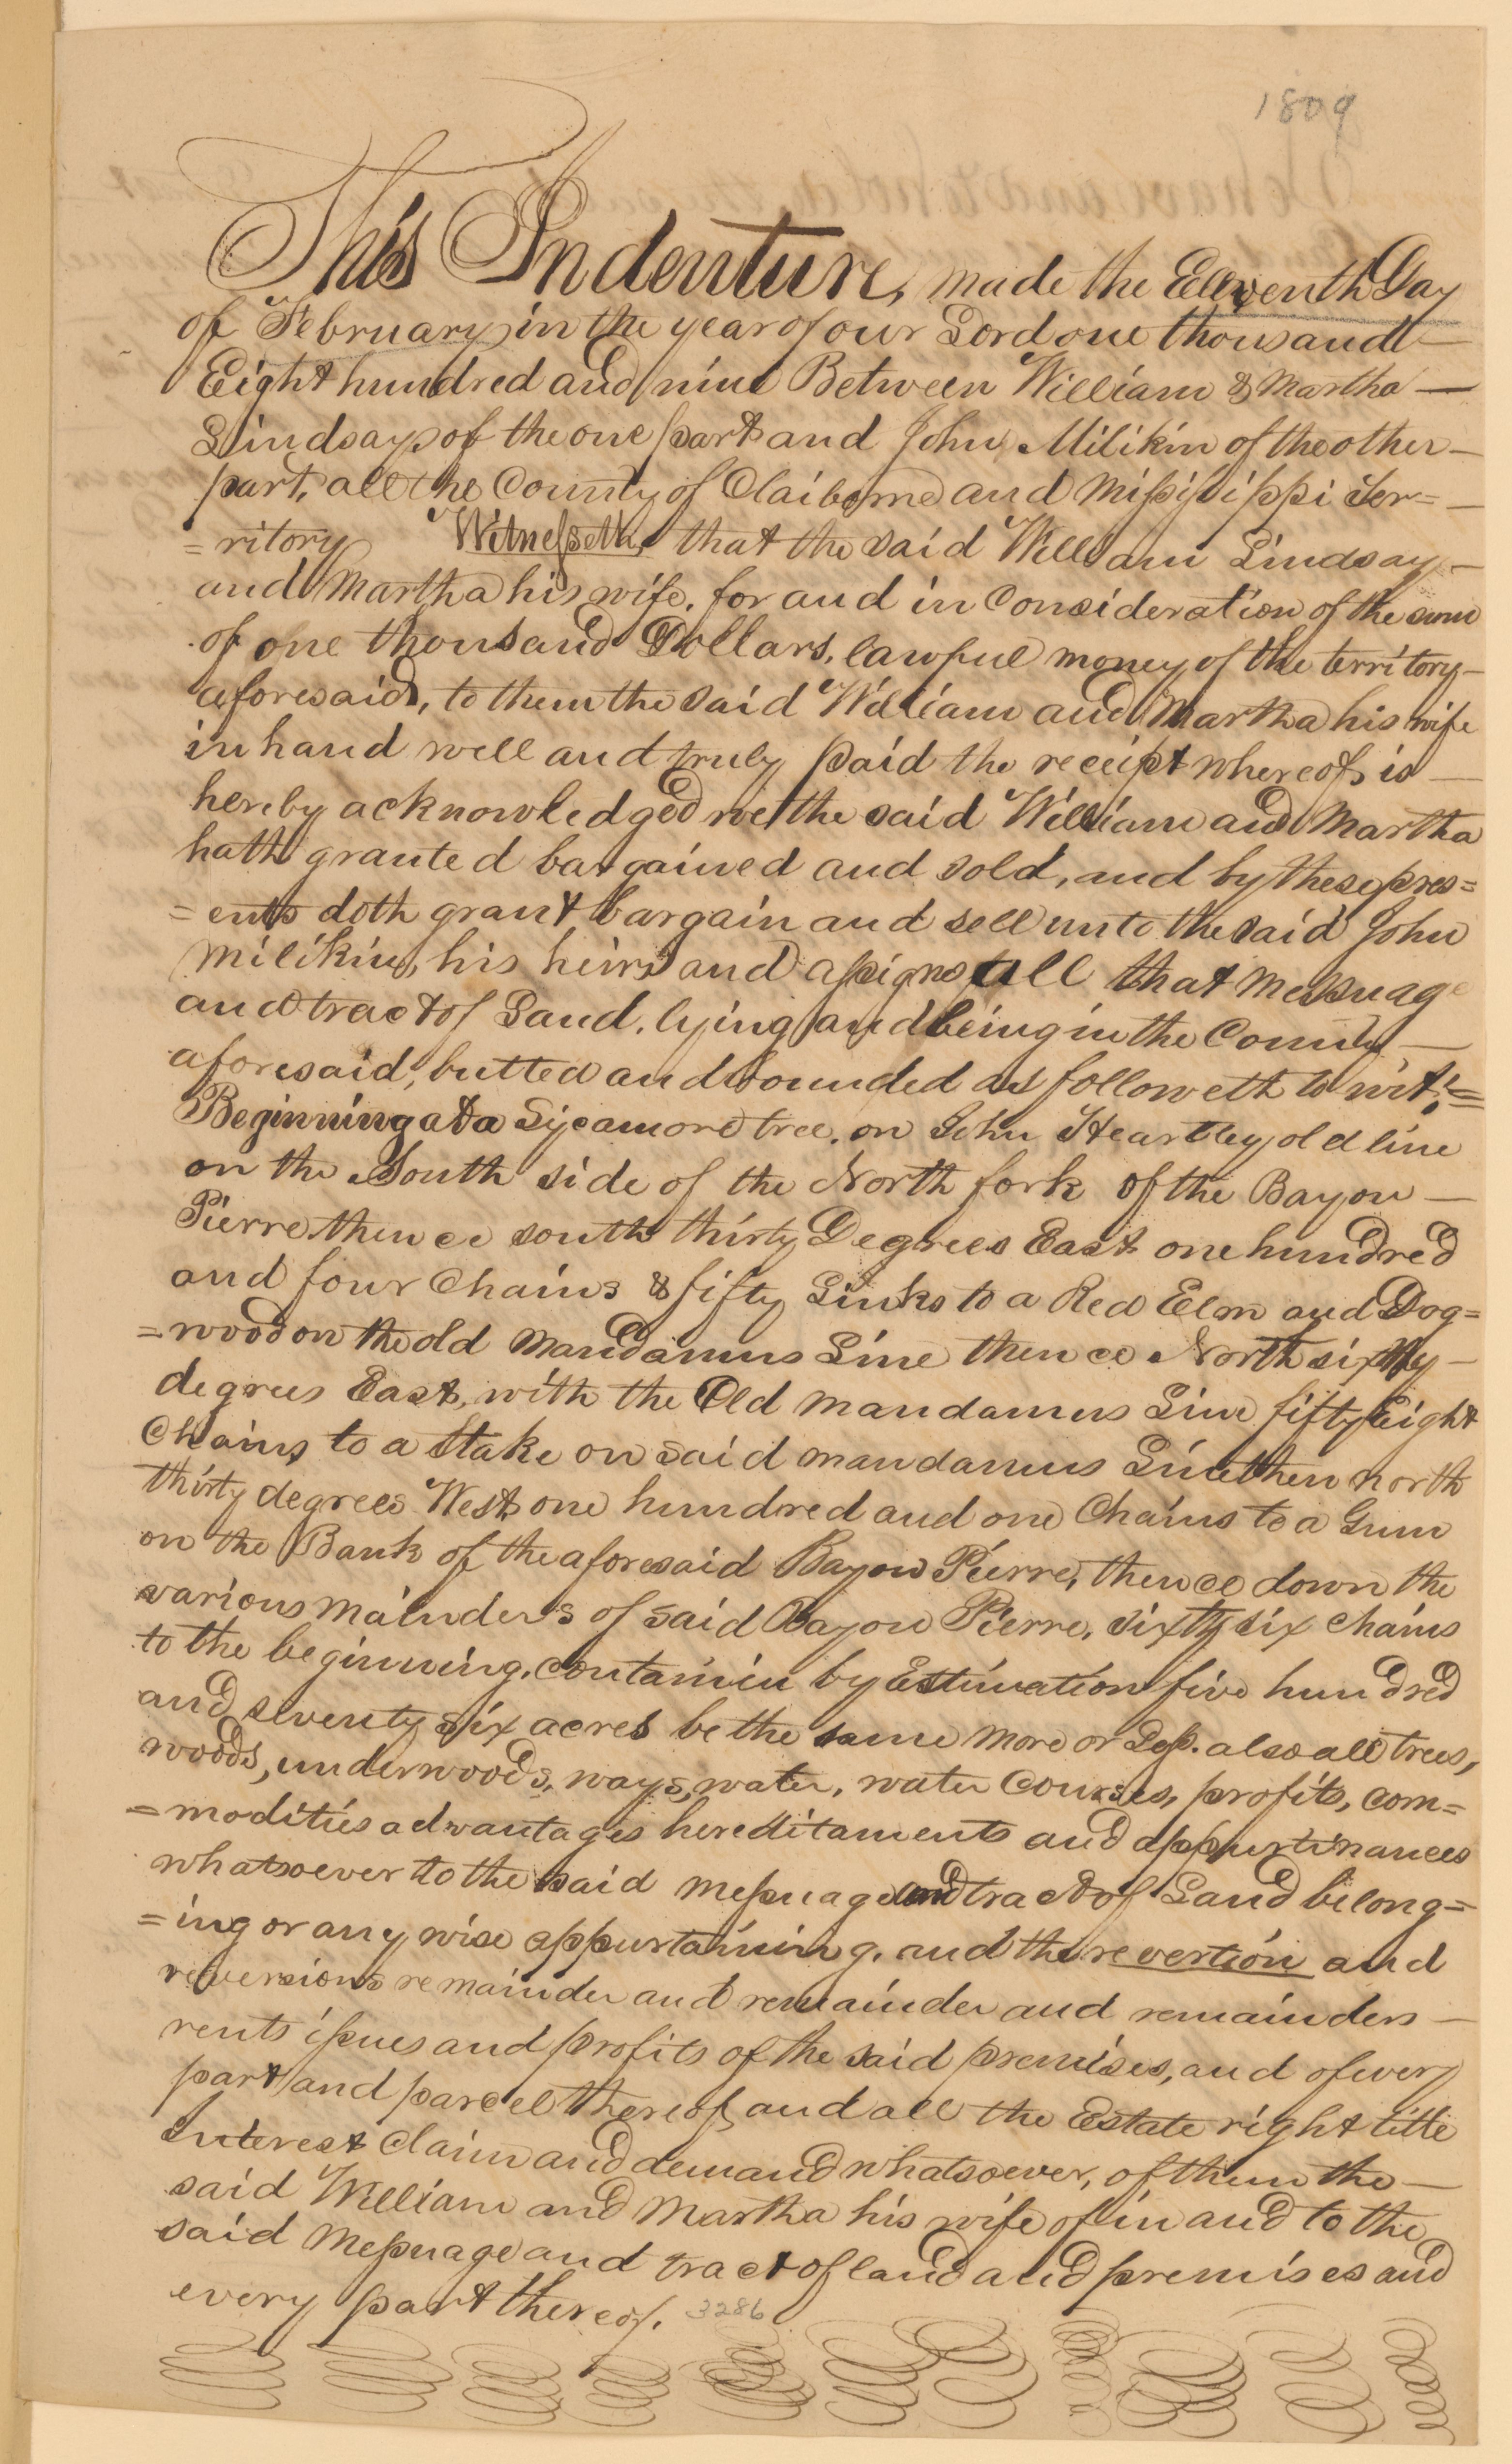 1809
This Indenture, made the Elleventh Day
of February in the year of our Lord one thousand
Eight hundred and nine Between William & Martha
Lindsay of the one part and John Milikin of the other
part, all the County of Claiborne and Missisippi Ter=
=ritory Witnesseth, that the said William Lindsay
and Martha his wife, for and in Consideration of the sum
of one thousand Dollars, lawful money of the territory
aforesaid, to them the said William and Martha his wife
in hand well and truly paid the receipt whereof is
hereby acknowledged we the said William and Martha
hath granted bargained and sold, and by these pres=
=ents doth grant bargain and sell unto the said John
Milikin, his heirs and assigns all that Messuage
and tract of Land, lying and being in the County
aforesaid, butted and bounded as followeth to wit;=
Beginning at a Sycamore tree, on John Heartley old line
on the South side of the North fork of the Bayou
Pierre thence south thirty Degrees East one hundred
and four Chains & fifty Links to a Red Elm and Dog=
=wood on the old Mandamus Line thence North sixtty
degrees East, with the Old mandamus Line fifty Eight
Chains to a Stake on said mandamus Line then north
thirty degrees West one hundred and one Chains to a Gum
on the Bank of the aforesaid Bayou Pierre, thence down the
various mainders of said Bayou Pierre, sixty six Chains
to the beginning, contanin by Estimation five hundred
and seventy six acres be the same more or Less. also all trees,
woods, underwoods, ways, water, water Courses, profits, com=
=modities advantages hereditaments and appurtinances
whatsoever to the said messuage and tract of Land belong=
=ing or any wise appurtaining, and the revertion and
reversions remainder and remainder and remainders
rents issues and profits of the said premises, and of every
part and parcel thereof, and all the Estate right title
Interest Claim and demand whatsoever, of them the
said William and Martha his wife of in and to the
said Messuage and tract of land and premises and
every part thereof. 3286